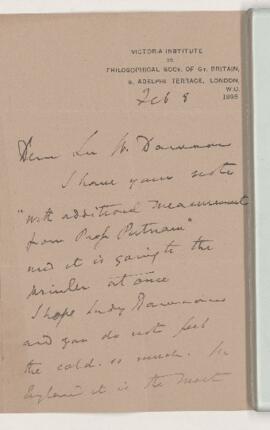 VICTORIA INSTITUTE
OR
PHILOSOPHICAL SOCY. OF GT. BRITAIN,
8, ADELPHI TERRACE, LONDON,
W.C.
1895
Feb 8
Dear Sir W. Dawson
I have your note
"with additional measurement
from Prof Putnam"
and it is going to the
printer at once
I hope Lady Dawson
and you do not feel
the cold so much. In
England it is the most